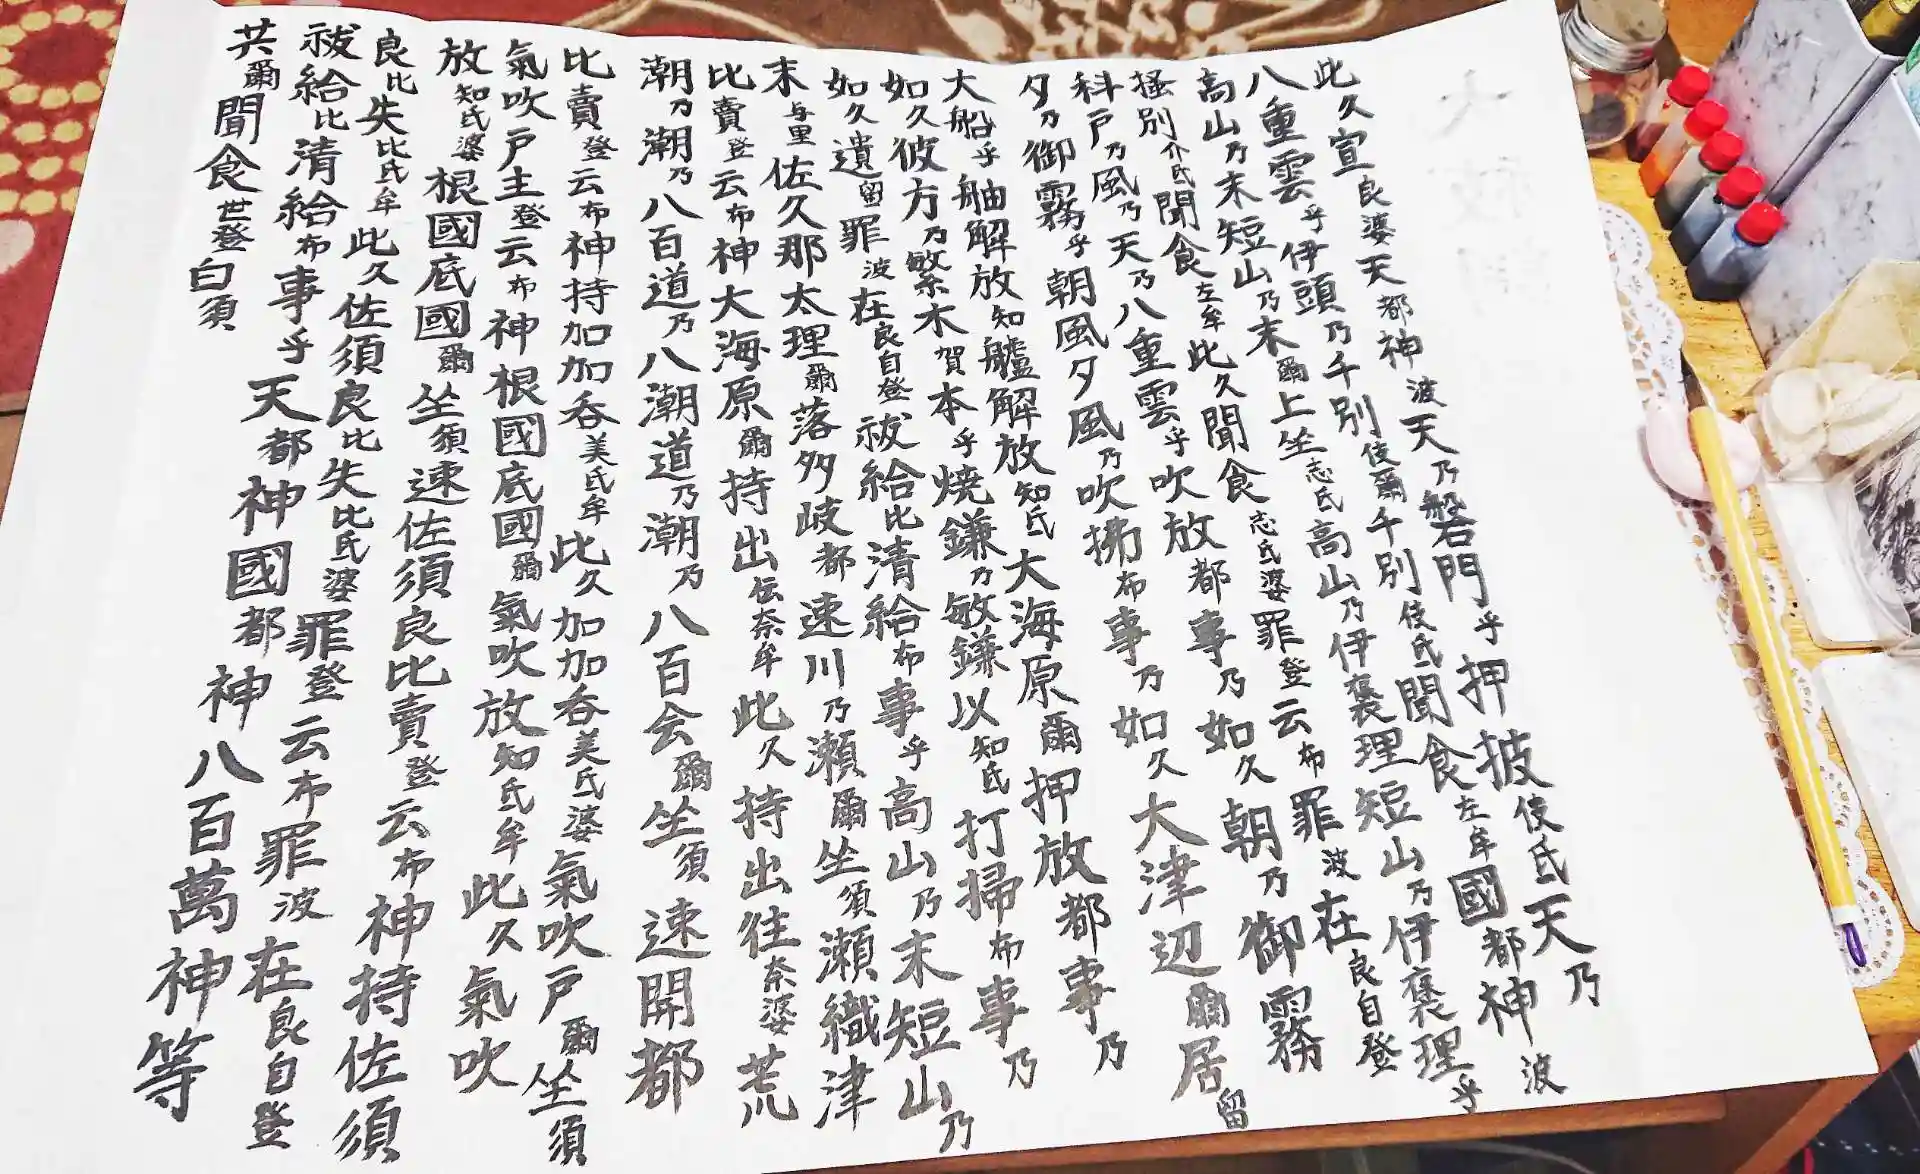 此久宣良婆天都神波天乃磐門乎押披伎氐天乃
八重雲乎伊頭乃千別伎爾千別伎氐聞食左牟國都神波
高山乃末短山乃末爾上坐志氐高山乃伊褒理短山乃伊褒理乎
搔別介氐聞食左牟此久聞食志氐婆罪登云布罪波在良自登
科戸乃風乃天乃八重雲乎吹放都事乃如久朝乃御霧
夕乃御霧乎朝風夕風乃吹拂布事乃如久大津辺爾居留
大船乎舳解放知艫解放知氐大海原爾押放都事乃
如久彼方乃繁木賀本乎焼鎌乃敏鎌以知氐打掃布事乃
如久遺留罪波在良自登祓給比清給布事乎高山乃末短山乃
末与里佐久那太理爾落多岐都速川乃瀬爾坐須瀬織津
比賣登云布神大海原爾持出伝奈牟此久持出往奈婆荒
潮乃潮乃八百道乃八潮道乃潮乃八百会爾坐須速開都
比賣登云布神持加加呑美氐牟此久加加呑美氐婆氣吹戸爾坐須
氣吹戸主登云布神根國底國爾氣吹放知氐牟此久氣吹
放知氐婆根國底國爾坐須速佐須良比賣登云布神持佐須
良比失比氐牟此久佐須良比失比氐婆罪登云布罪波在良自登
祓給比清給布事乎天都神國都神八百萬神等
共爾聞食世登白須